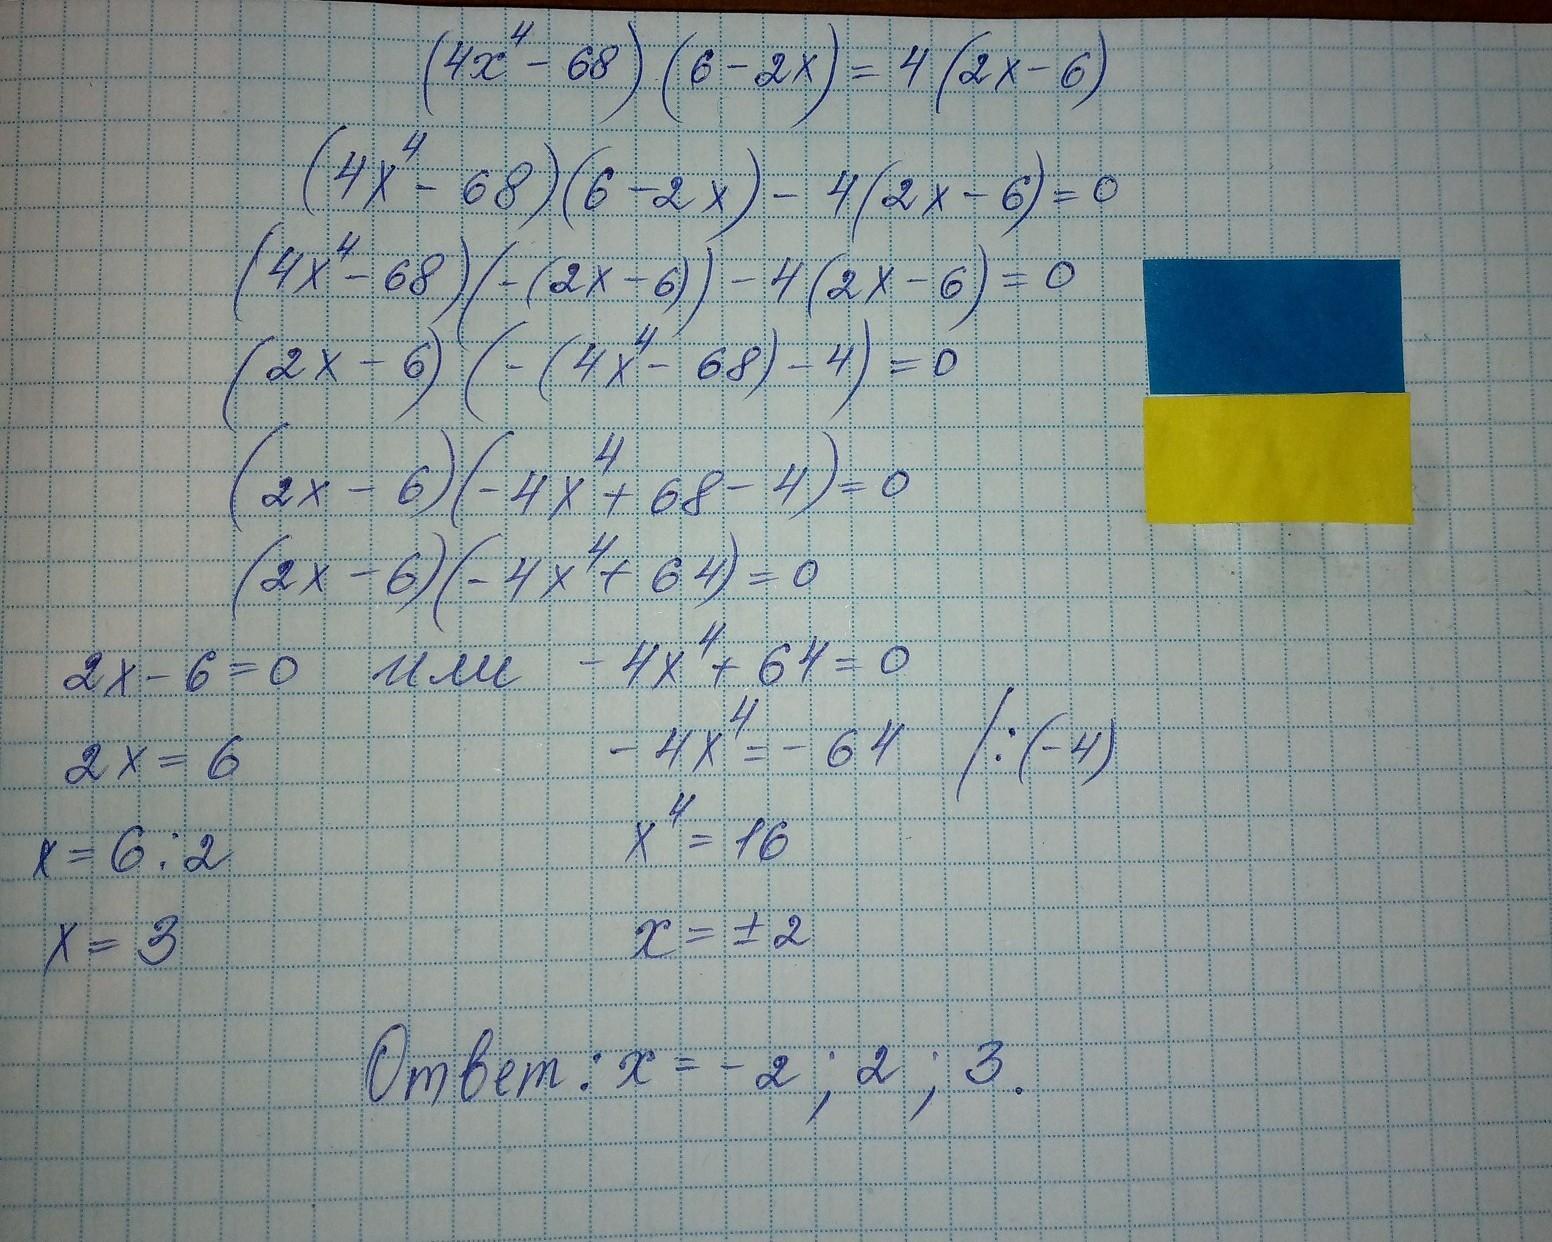 (4x⁴ - 68)(6 - 2x) = 4(2x - 6)
(4x⁴ - 68)(6 - 2x) - 4(2x - 6) = 0
(4x⁴ - 68)(-(2x - 6)) - 4(2x - 6) = 0
(2x - 6)(-(4x⁴ - 68) - 4) = 0
(2x - 6)(-4x⁴ + 68 - 4) = 0
(2x - 6)(-4x⁴ + 64) = 0
2x - 6 = 0 или -4x⁴ + 64 = 0
2x = 6 -4x⁴ = -64 /:(-4)
x = 6 : 2 x⁴ = 16
x = 3 x = ±2
Ответ: x = -2; 2; 3.